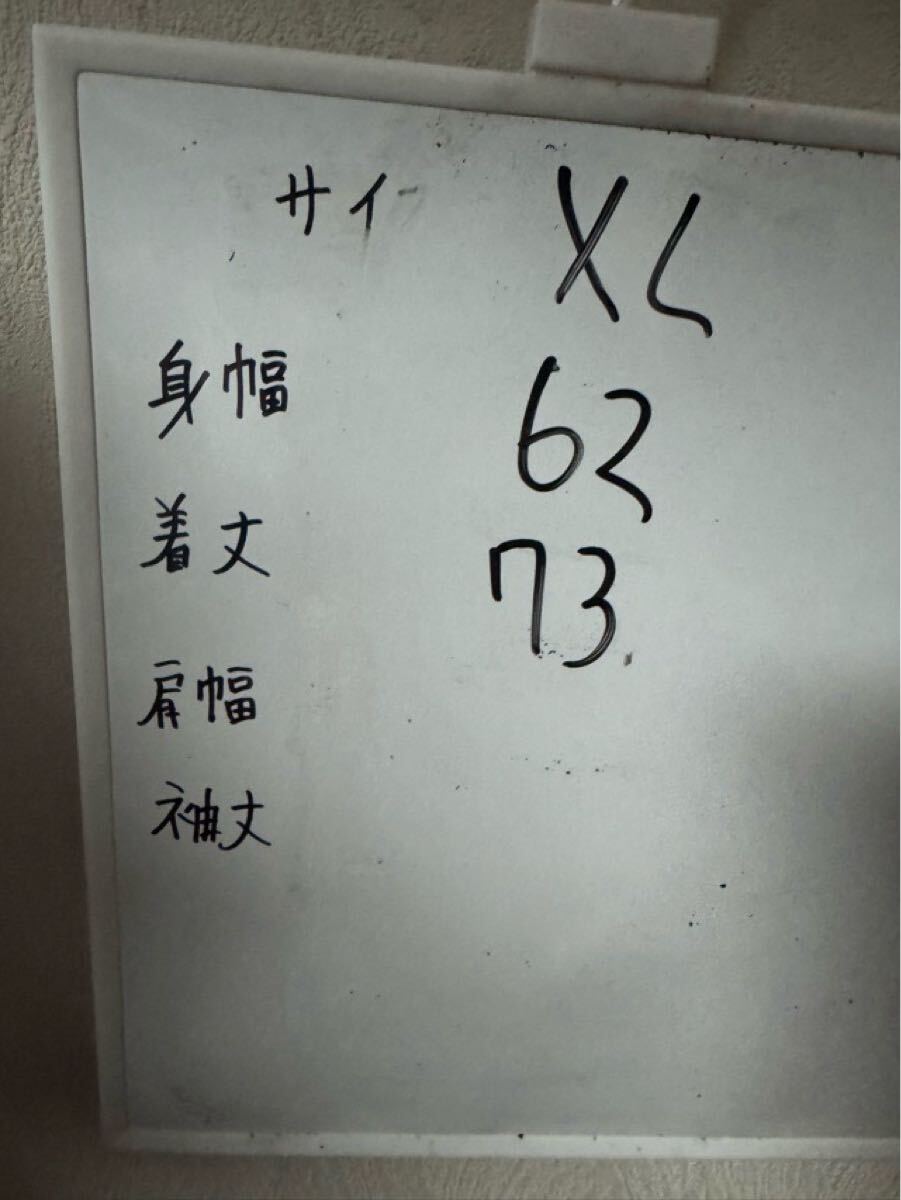 サイ XL
身幅 62
着丈 73
肩幅
袖丈